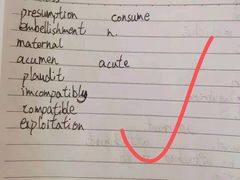 presumption consume
embellishment n.
maternal
acumen acute
plaudit
imcompatibly
compatible
exploitation